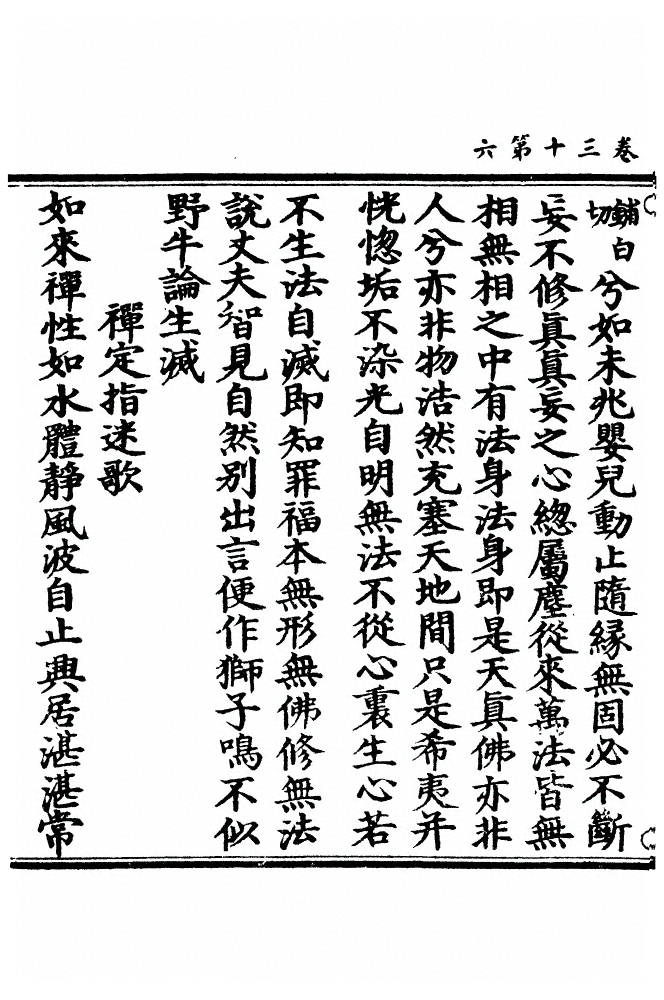 卷三十第六
鋪白切兮如未兆嬰兒動止隨緣無固必不斷
妄不修眞眞妄之心緫屬塵從來萬法皆無
相無相之中有法身法身即是天眞佛亦非
人兮亦非物浩然充塞天地間只是希夷并
恍惚垢不染光自明無法不從心裏生心若
不生法自滅即知罪福本無形無佛修無法
說丈夫智見自然別出言便作獅子鳴不似
野牛論生滅
禪定指迷歌
如來禪性如水體靜風波自止興居湛湛常